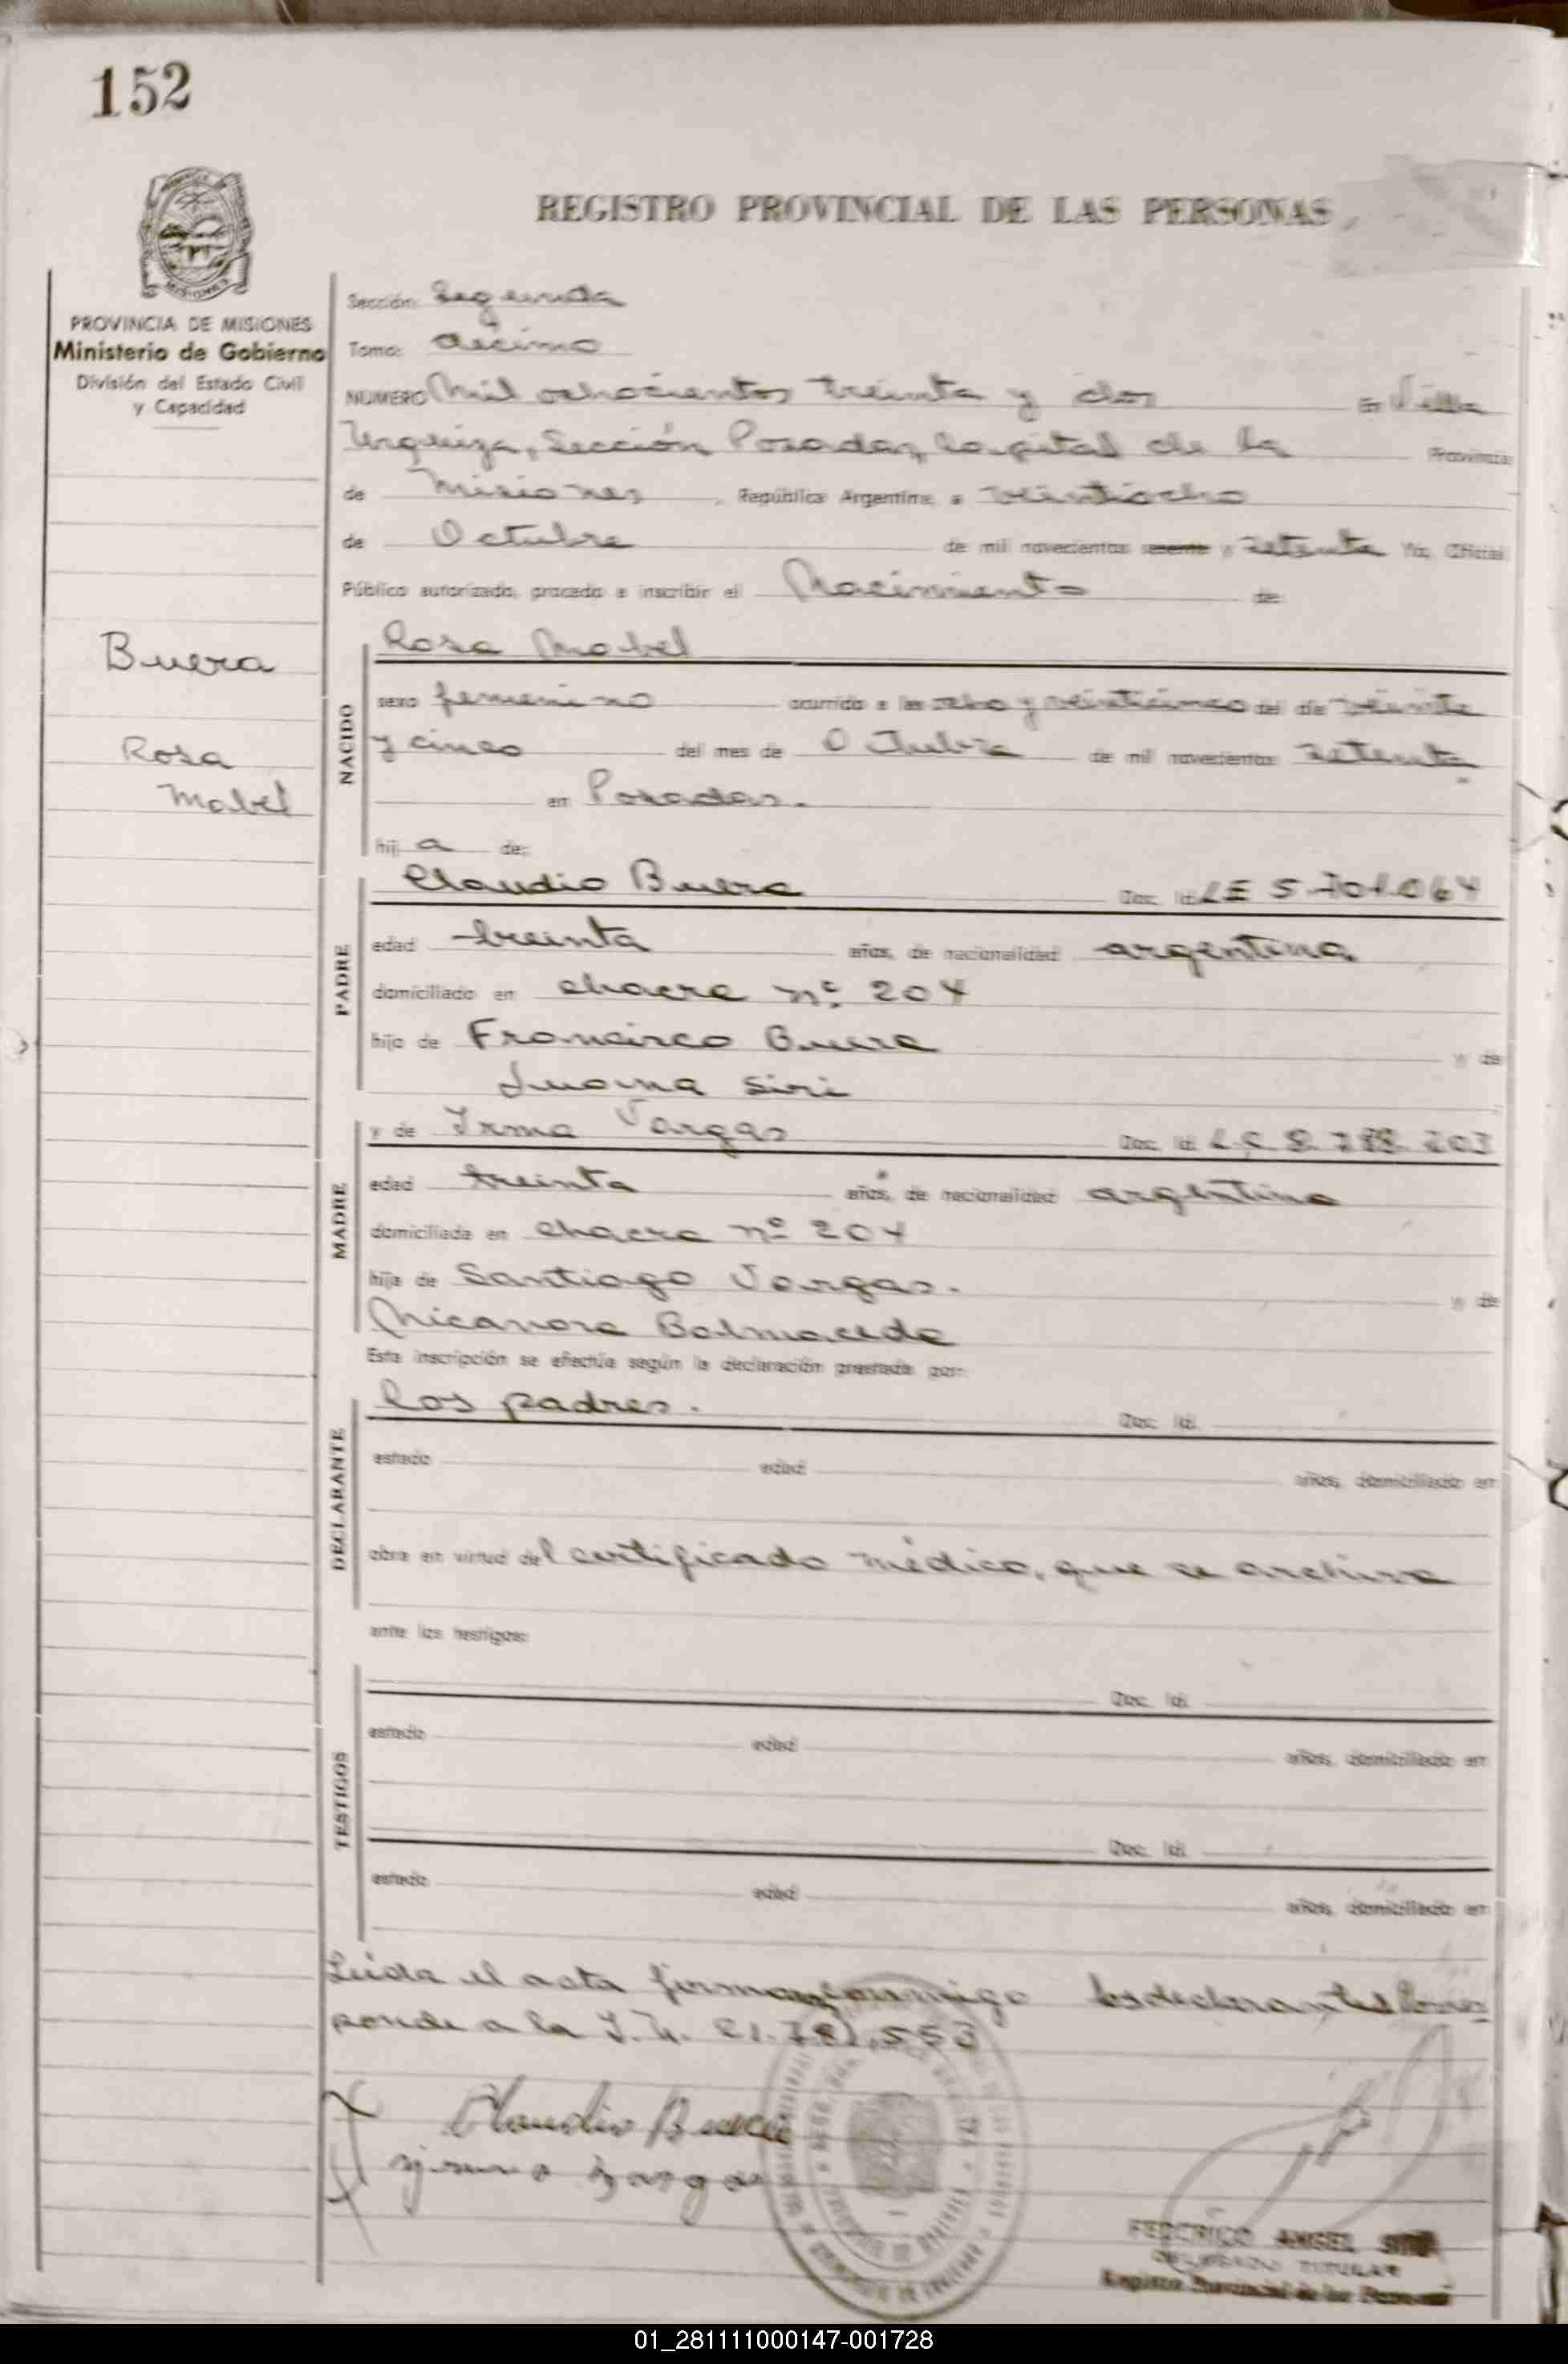 152
REGISTRO PROVINCIAL DE LAS PERSONAS
MISIONES
PROVINCIA DE MISIONES
Ministerio de Gobierno
División del Estado Civil
y Capacidad
Buera
Rosa
Mabel
Sección: Segunda
Tomo: décimo
NUMERO Mil ochocientos treinta y dos En Villa
Urquiza, Sección Posadas, Capital de la Provincia
de Misiones, República Argentina, a veintiocho
de Octubre de mil novecientos sesenta y setenta Yo, Oficial
Público autorizado, procedo a inscribir el Nacimiento de:
NACIDO
Rosa Mabel
sexo femenino ocurrido a las ocho y veinticinco del día veinte
y cinco del mes de Octubre de mil novecientos setenta
en Posadas.
hij a de:
PADRE
Claudio Buera Doc. Id. LE 5.701.064
edad treinta años, de nacionalidad argentina
domiciliado en chacra nº 204
hijo de Francisco Buera y de
Juana Siri
MADRE
y de Irma Vargas Doc. Id. L.C. 203
edad treinta años, de nacionalidad argentina
domiciliada en chacra nº 204
hija de Santiago Vargas. y de
Nicanora Balmaceda
Esta inscripción se efectúa según la declaración prestada por:
DECLARANTE
los padres. Doc. Id.
estado edad años, domiciliado en
obra en virtud del certificado médico, que se archiva
ante los testigos:
TESTIGOS
Doc. Id.
estado edad años, domiciliado en
Doc. Id.
estado edad años, domiciliado en
Leida el acta firman conmigo los declarantes Corres
ponde a la 21.781.553
Claudio Buera
Vargas
FEDERICO ANGEL
DELEGADO TITULAR
Registro Provincial de las Personas
01_281111000147-001728